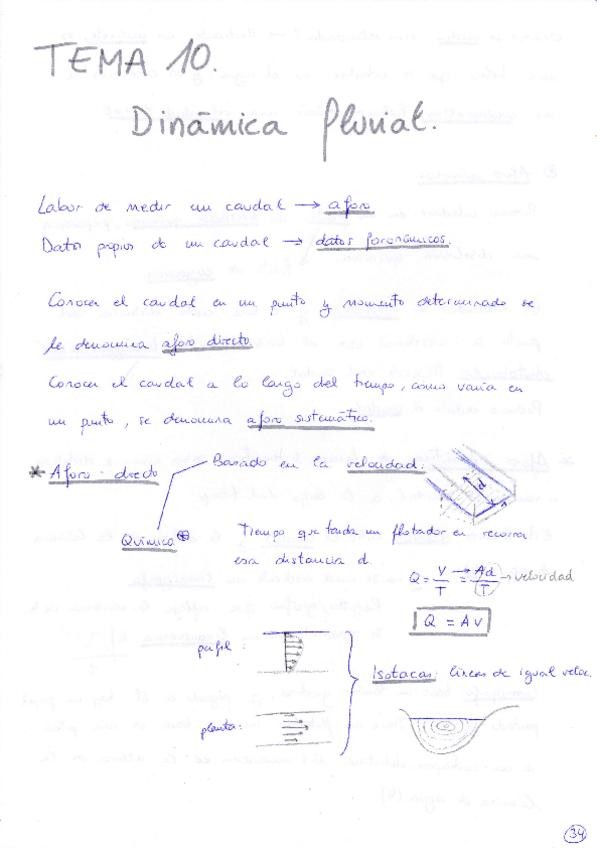 TEMA 10.
Dinámica Pluvial.
Labor de medir un caudal → aforo
Datos propios de un caudal → datos foronómicos.
Conocer el caudal en un punto y momento determinado se
le denomina aforo directo
Conocer el caudal a lo largo del tiempo, como varía en
un punto, se denomina aforo sistemático.
* Aforo directo
Basado en la velocidad:
d
Químico ⊕
Tiempo que tarda un flotador en recorrer
esa distancia d
Q = V/T → = Ad/T → velocidad
Q = A v
perfil:
planta:
Isotacas: líneas de igual veloc.
34